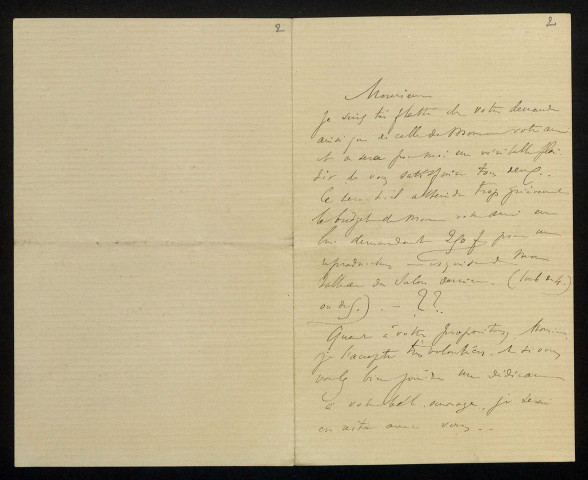 2
2
Monsieur
Je suis très flatté de votre demande
ainsi que de celle de Monsieur votre ami
et ce sera pour moi un véritable plai-
sir de vous satisfaire tous deux.
Ce serait-il atteindre trop grièvement
le budget de Monsieur votre ami en
lui demandant 250 f pour une
reproduction esquisse de mon
tableau du Salon dernier. (toile de 4.)
ou de 5.) . — ??
Quant à votre proposition, Monsieur,
je l'accepte très volontiers, et si vous
voulez bien joindre une dédicace
à votre bel ouvrage, je serai
en reste avec vous..